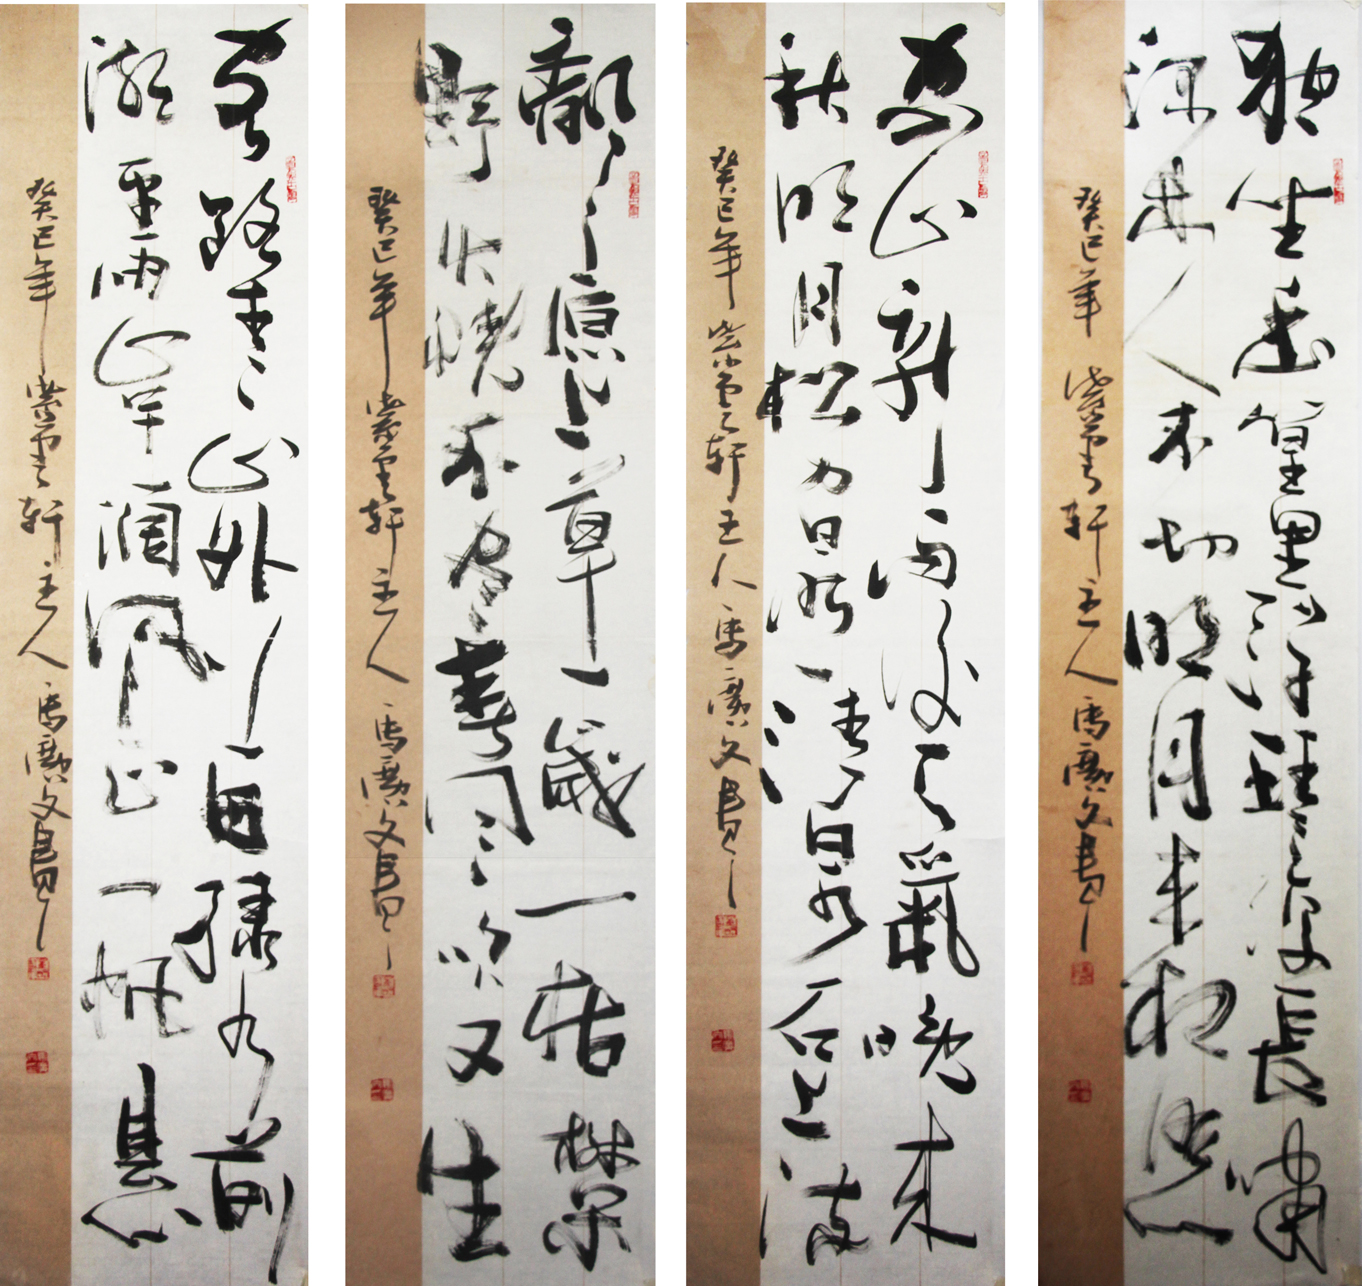 獨坐幽篁里彈琴復長嘯
深林人不知明月來相照
癸巳年紫雲軒主人馬勵文書
空山新雨後天氣晚來
秋明月松間照清泉石上流
癸巳年紫雲軒主人馬勵文書
離離原上草一歲一枯榮
野火燒不盡春風吹又生
癸巳年紫雲軒主人馬勵文書
客路青山外行舟綠水前
潮平兩岸闊風正一帆懸
癸巳年紫雲軒主人馬勵文書